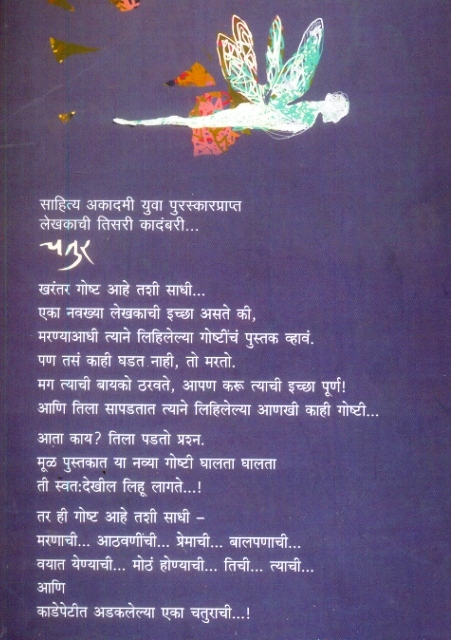 साहित्य अकादमी युवा पुरस्कारप्राप्त
लेखकाची तिसरी कादंबरी...
चतुर
खरंतर गोष्ट आहे तशी साधी...
एका नवख्या लेखकाची इच्छा असते की,
मरण्याआधी त्याने लिहिलेल्या गोष्टींचं पुस्तक व्हावं.
पण तसं काही घडत नाही, तो मरतो.
मग त्याची बायको ठरवते, आपण करू त्याची इच्छा पूर्ण!
आणि तिला सापडतात त्याने लिहिलेल्या आणखी काही गोष्टी...
आता काय? तिला पडतो प्रश्न.
मूळ पुस्तकात या नव्या गोष्टी घालता घालता
ती स्वत:देखील लिहू लागते...!
तर ही गोष्ट आहे तशी साधी –
मरणाची... आठवणींची... प्रेमाची... बालपणाची...
वयात येण्याची... मोठं होण्याची... तिची... त्याची...
आणि
काडेपेटीत अडकलेल्या एका चतुराची...!